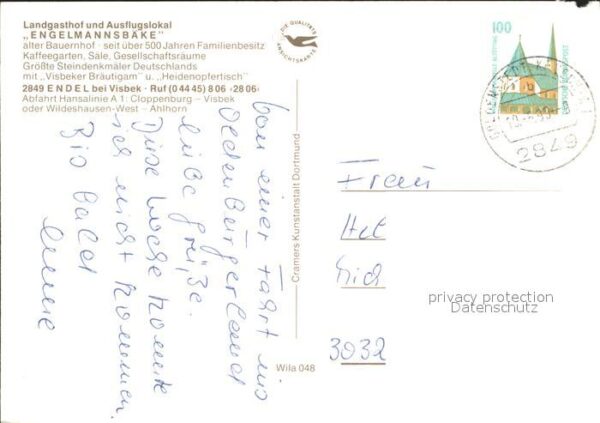 Landgasthof und Ausflugslokal
„ENGELMANNSBÄKE"
alter Bauernhof · seit über 500 Jahren Familienbesitz
Kaffeegarten, Säle, Gesellschaftsräume
Größte Steindenkmäler Deutschlands
mit „Visbeker Bräutigam" u. „Heidenopfertisch"
2849 ENDEL bei Visbek · Ruf (0 44 45) 8 06
Abfahrt Hansalinie A 1: Cloppenburg – Visbek
oder Wildeshausen-West – Ahlhorn
DIE QUALITÄTS
ANSICHTSKARTE
Cramers Kunstanstalt Dortmund
Wila 048
100
2849
von einer Fahrt ins
Oldenburgerland
liebe Grüße.
Diese Woche konnte
ich nicht kommen.
Bis bald
Frau
3032
privacy protection
Datenschutz